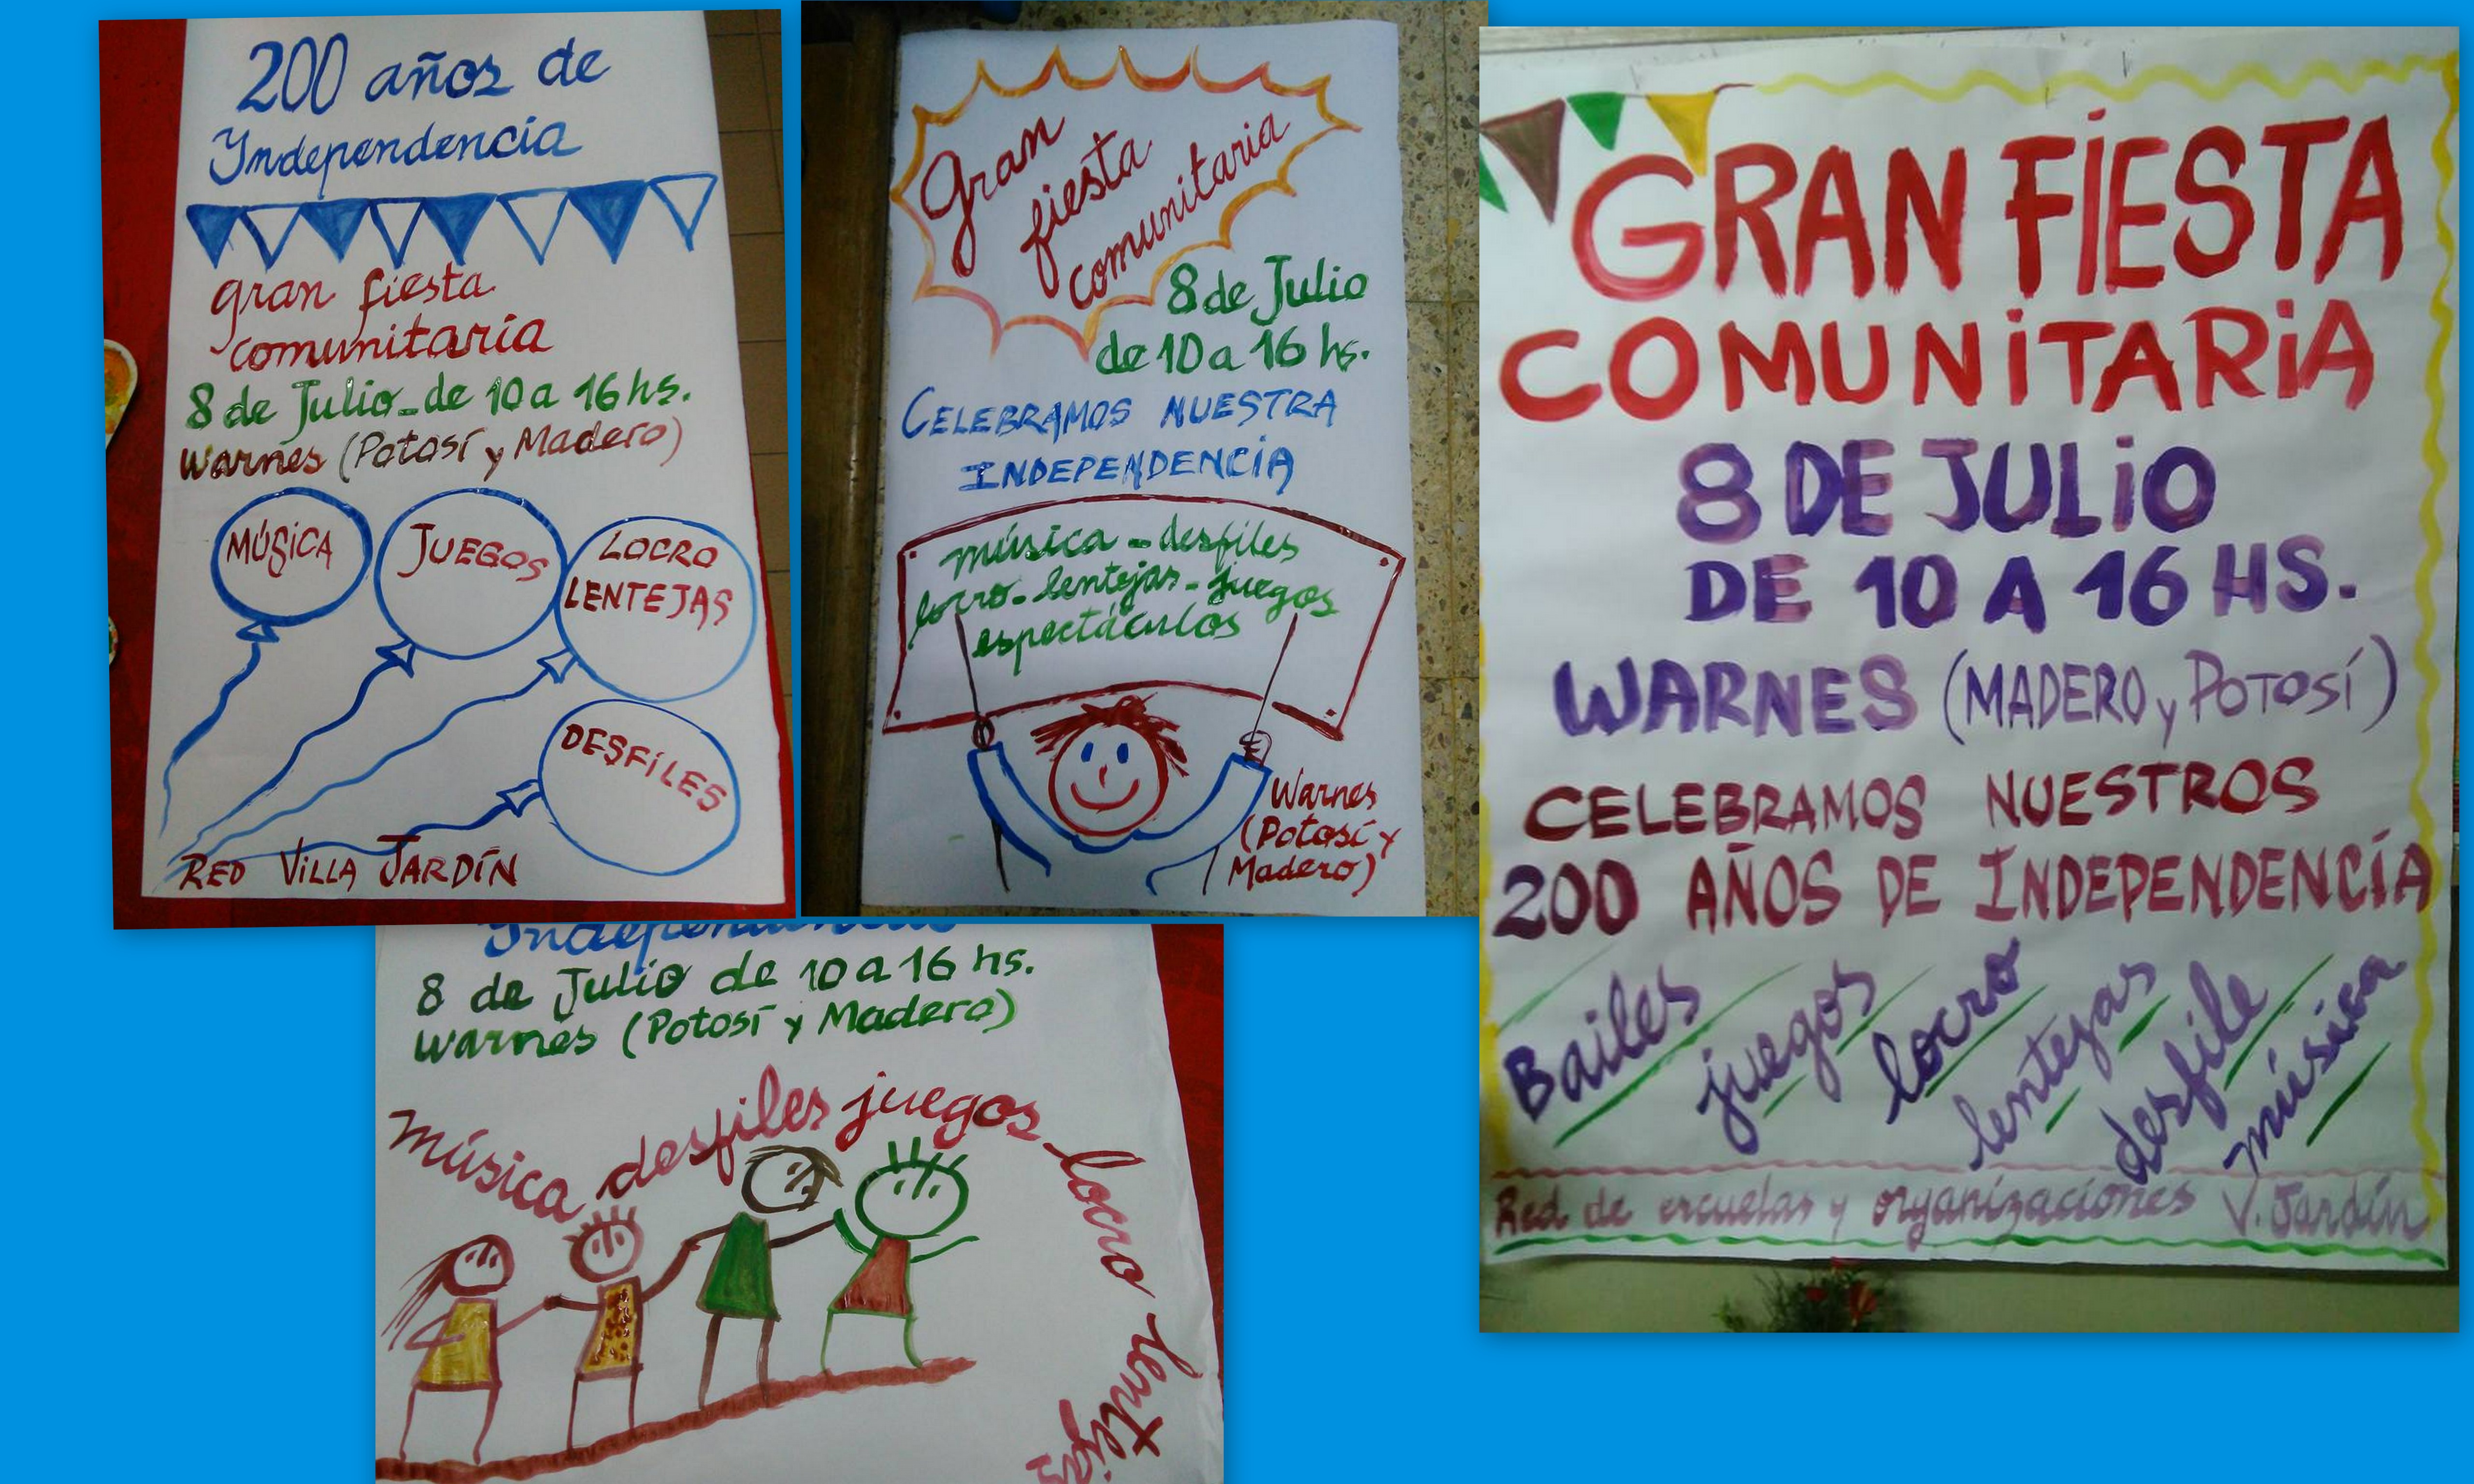 200 años de
Independencia
gran fiesta
comunitaria
8 de Julio - de 10 a 16 hs.
Warnes (Potosí y Madero)
MÚSICA
JUEGOS
LOCRO
LENTEJAS
DESFILES
RED VILLA JARDÍN
Gran
fiesta
comunitaria
8 de Julio
de 10 a 16 hs.
CELEBRAMOS NUESTRA
INDEPENDENCIA
música - desfiles
locro - lentejas - juegos
espectáculos
Warnes
(Potosí y
Madero)
GRAN FIESTA
COMUNITARIA
8 DE JULIO
DE 10 A 16 HS.
WARNES (MADERO y POTOSÍ)
CELEBRAMOS NUESTROS
200 AÑOS DE INDEPENDENCÍA
Bailes
juegos
locro
lentejas
desfile
música
Red de escuelas y organizaciones V. Jardín
Independencia
8 de Julio de 10 a 16 hs.
Warnes (Potosí y Madero)
Música desfiles juegos locro lentejas